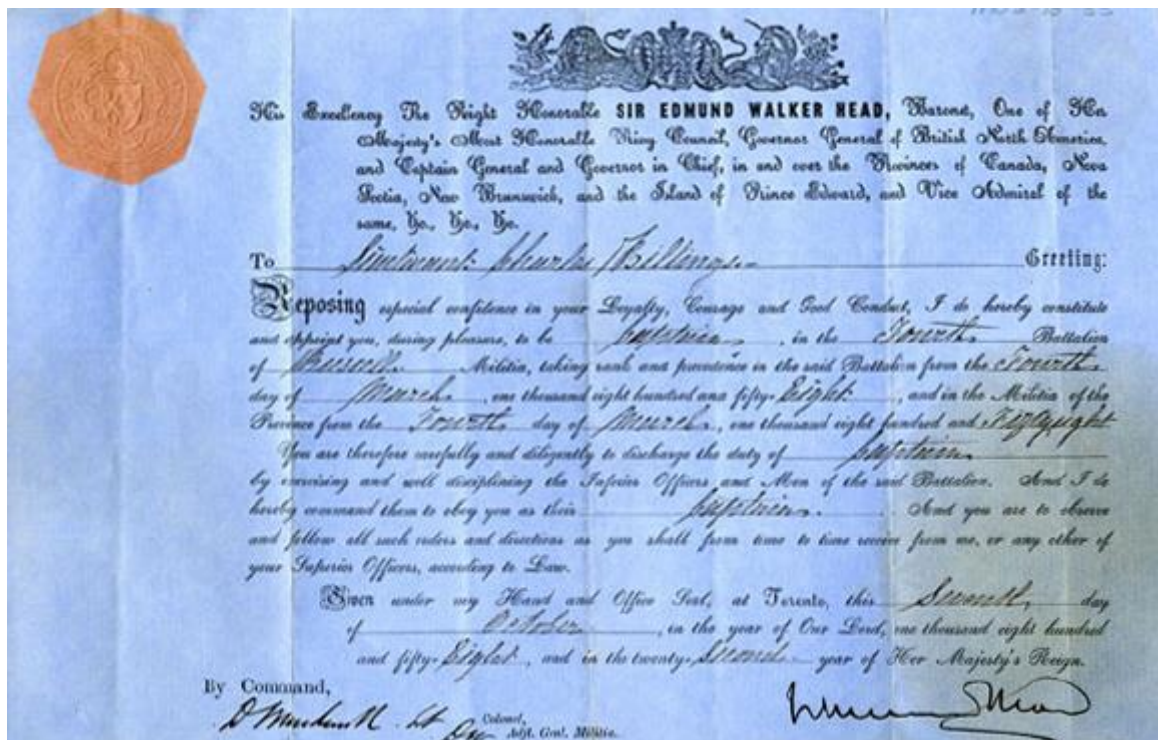 His Excellency The Right Honorable SIR EDMUND WALKER HEAD, Baronet, One of Her
Majesty's Most Honorable Privy Council, Governor General of British North America,
and Captain General and Governor in Chief, in and over the Provinces of Canada, Nova
Scotia, New Brunswick, and the Island of Prince Edward, and Vice Admiral of the
same, &c., &c., &c.
To Lieutenant Charles Billings Greeting:
Reposing especial confidence in your Loyalty, Courage and Good Conduct, I do hereby constitute
and appoint you, during pleasure, to be Captain, in the Fourth Battalion
of Russell Militia, taking rank and precedence in the said Battalion from the Fourth
day of March, one thousand eight hundred and fifty-Eight, and in the Militia of the
Province from the Fourth day of March, one thousand eight hundred and Fiftyeight
You are therefore carefully and diligently to discharge the duty of Captain
by exercising and well disciplining the Inferior Officers and Men of the said Battalion. And I do
hereby command them to obey you as their Captain. And you are to observe
and follow all such orders and directions as you shall from time to time receive from me, or any other of
your Superior Officers, according to Law.
Given under my Hand and Office Seal, at Toronto, this day
of October, in the year of Our Lord, one thousand eight hundred
and fifty-Eight, and in the twenty-Second year of Her Majesty's Reign.
By Command,
Colonel,
Adjt. Genl. Militia.